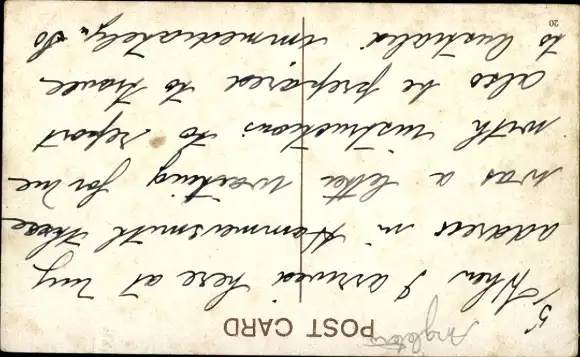 POST CARD
5
When I arrived here at my
address in Hammersmith there
was a letter waiting for me
with instructions to report
also be prepared to travel
to Australia immediately". So
20